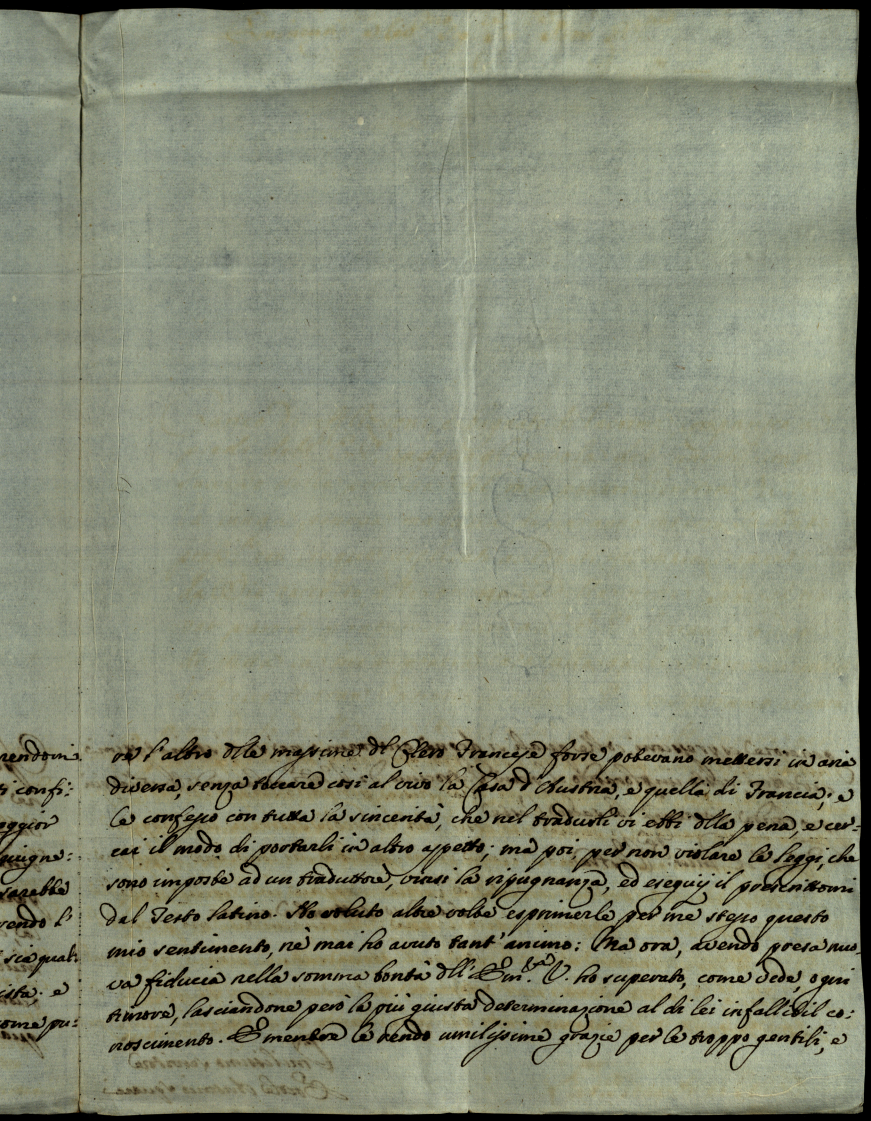 rendomi
ti confi:
eggior
quigne:
sarebbe
vendo l'
sia quali
ista; e
come pu:
ve l'altro dlle massime dl Clero Francese forse potevano mettersi in aria
diversa, senza toccare così al vivo la Casa d'Austria, e quella di Francia; e
le confesso con tutta la sincerità, che nel tradurli vi ebbi dlla pena, e cer-
cai il modo di portarli in altro aspetto; ma poi, per non violare le leggi, che
sono imposte ad un traduttore, vinsi la ripugnanza, ed eseguij il prescrittomi
dal Testo latino. Ho voluto altre volte esprimerle per me stesso questo
mio sentimento, nè mai ho avuto tant'animo: Ma ora, avendo presa nuo-
va fiducia nella somma bontà dll' Em.za V. ho superato, come vede, ogni
timore, lasciandone però la più giusta determinazione al di lei infallibil co:
noscimento. E mentre le rendo umilissime grazie per le troppo gentili, e